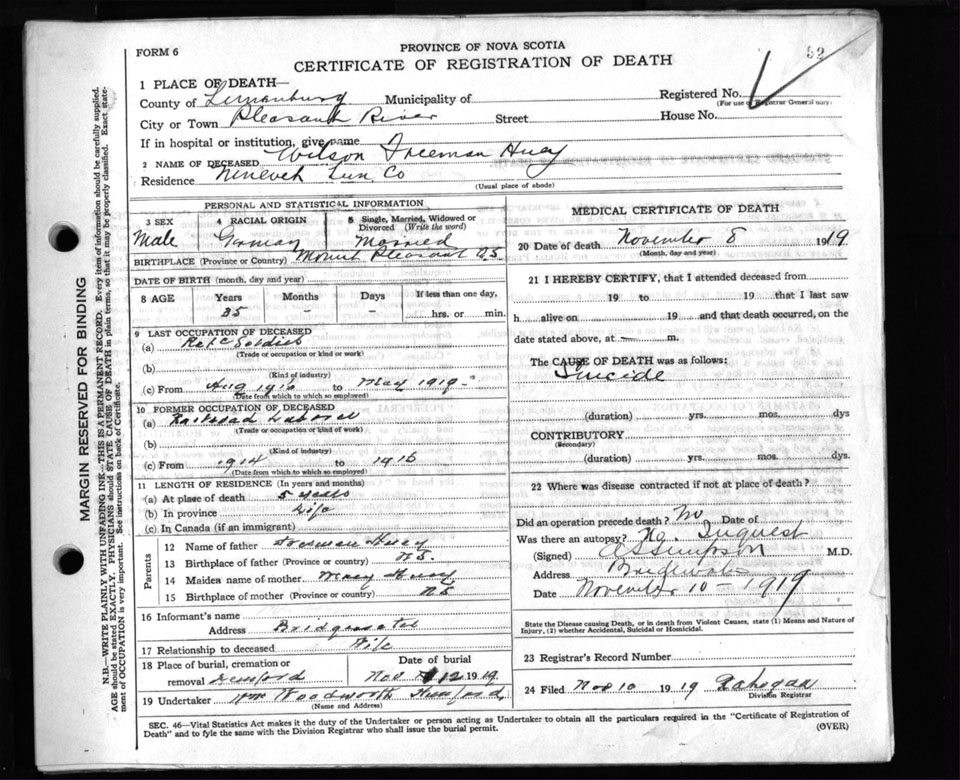 52
FORM 6
PROVINCE OF NOVA SCOTIA
CERTIFICATE OF REGISTRATION OF DEATH
1 PLACE OF DEATH—
County of Lunenburg Municipality of
Registered No.
(For use of Registrar General only)
City or Town Pleasant River Street House No.
If in hospital or institution, give name
2 NAME OF DECEASED Wilson Freeman Huey
Residence Nineveh Lun Co
(Usual place of abode)
PERSONAL AND STATISTICAL INFORMATION
3 SEX
Male
4 RACIAL ORIGIN
German
5 Single, Married, Widowed or Divorced (Write the word)
Married
BIRTHPLACE (Province or Country) Mount Pleasant N.S.
DATE OF BIRTH (month, day and year)
8 AGE Years Months Days If less than one day,
35 – – hrs. or min.
9 LAST OCCUPATION OF DECEASED
(a) Retd Soldier
(Trade or occupation or kind or work)
(b)
(Kind of industry)
(c) From Aug 1916 to May 1919
(Date from which to which so employed)
10 FORMER OCCUPATION OF DECEASED
(a) Railroad Laborer
(Trade or occupation or kind of work)
(b)
(Kind of industry)
(c) From 1914 to 1916
(Date from which to which so employed)
11 LENGTH OF RESIDENCE (In years and months)
(a) At place of death 5 years
(b) In province Life
(c) In Canada (if an immigrant)
Parents
12 Name of father Freeman Huey
13 Birthplace of father (Province or country) N.S.
14 Maiden name of mother Mary Huey
15 Birthplace of mother (Province or country) N.S
16 Informant's name
Address Bridgewater
17 Relationship to deceased Wife
18 Place of burial, cremation or removal Hemford
Date of burial
Nov 12 1919
19 Undertaker Wm Woodworth Hemford
(Name and Address)
MEDICAL CERTIFICATE OF DEATH
20 Date of death November 8 1919
(Month, day and year)
21 I HEREBY CERTIFY, that I attended deceased from
19 to 19 that I last saw
h alive on 19 and that death occurred, on the
date stated above, at — m.
The CAUSE OF DEATH was as follows:
Suicide
(duration) yrs. mos. dys
CONTRIBUTORY
(Secondary)
(duration) yrs. mos. dys.
22 Where was disease contracted if not at place of death?
Did an operation precede death? No Date of
Was there an autopsy? No. Inquest
(Signed) Simpson M.D.
Address Bridgewater
Date November 10 – 1919
State the Disease causing Death, or in death from Violent Causes, state (1) Means and Nature of Injury, (2) whether Accidental, Suicidal or Homicidal.
23 Registrar's Record Number
24 Filed Nov 10 1919
Division Registrar
SEC. 46—Vital Statistics Act makes it the duty of the Undertaker or person acting as Undertaker to obtain all the particulars required in the "Certificate of Registration of
Death" and to fyle the same with the Division Registrar who shall issue the burial permit.
(OVER)
MARGIN RESERVED FOR BINDING
N.B.—WRITE PLAINLY WITH UNFADING INK—THIS IS A PERMANENT RECORD. Every item of information should be carefully supplied.
AGE should be stated EXACTLY. PHYSICIANS should STATE CAUSE OF DEATH in plain terms, so that it may be properly classified. Exact state-
ment of OCCUPATION is very important. See instructions on back of Certificate.